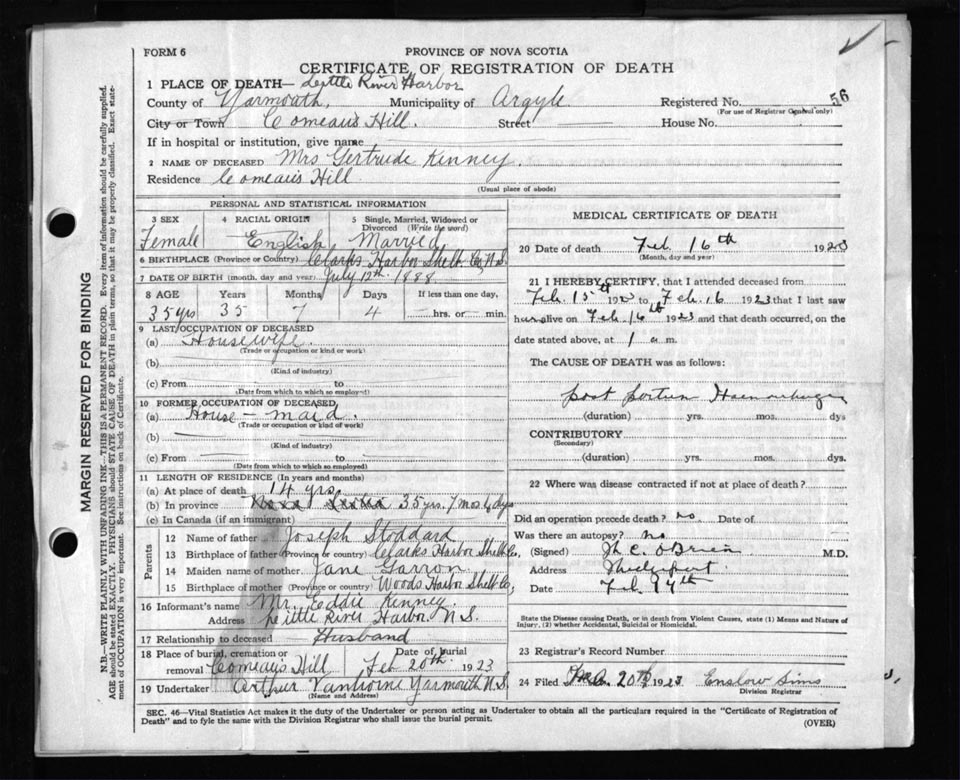 FORM 6
PROVINCE OF NOVA SCOTIA
CERTIFICATE OF REGISTRATION OF DEATH
1 PLACE OF DEATH— Little River Harbor
County of Yarmouth, Municipality of Argyle Registered No. 56
(For use of Registrar General only)
City or Town Comeau's Hill. Street House No.
If in hospital or institution, give name
2 NAME OF DECEASED Mrs Gertrude Kinney.
Residence Comeau's Hill
(Usual place of abode)
PERSONAL AND STATISTICAL INFORMATION
3 SEX 4 RACIAL ORIGIN 5 Single, Married, Widowed or Divorced (Write the word)
Female English Married
6 BIRTHPLACE (Province or Country) Clarks Harbor Shelb. Co, N.S.
7 DATE OF BIRTH (month, day and year) July 12th. 1888.
8 AGE Years Months Days If less than one day,
35 yrs 35 7 4 hrs. or min.
9 LAST OCCUPATION OF DECEASED
(a) Housewife.
(Trade or occupation or kind of work)
(b)
(Kind of industry)
(c) From to
(Date from which to which so employed)
10 FORMER OCCUPATION OF DECEASED
(a) House-maid.
(Trade or occupation or kind of work)
(b)
(Kind of industry)
(c) From to
(Date from which to which so employed)
11 LENGTH OF RESIDENCE (In years and months)
(a) At place of death 14 yrs.
(b) In province 35 yrs. 7 mos. 4 dys
(c) In Canada (if an immigrant)
Parents
12 Name of father Joseph Stoddard
13 Birthplace of father (Province or country) Clarks Harbor Shelb Co,
14 Maiden name of mother Jane Garron
15 Birthplace of mother (Province or country) Woods Harbor Shelb Co,
16 Informant's name Mr. Eddie Kinney.
Address Little River Harbor N.S.
17 Relationship to deceased Husband
18 Place of burial, cremation or removal Comeau's Hill Date of burial Feb 20th. 1923
19 Undertaker Arthur Vanhorne Yarmouth N.S.
(Name and Address)
MEDICAL CERTIFICATE OF DEATH
20 Date of death Feb. 16th 1923
(Month, day and year)
21 I HEREBY CERTIFY, that I attended deceased from
Feb. 15th 1923 to Feb. 16 1923 that I last saw
her alive on Feb. 16th 1923 and that death occurred, on the
date stated above, at 1 a.m.
The CAUSE OF DEATH was as follows:
post partum Haemorrhage
(duration) yrs. mos. dys
CONTRIBUTORY
(Secondary)
(duration) yrs. mos. dys.
22 Where was disease contracted if not at place of death?
Did an operation precede death? no. Date of
Was there an autopsy? no
(Signed) C. O'Brien M.D.
Address
Date Feb.
State the Disease causing Death, or in death from Violent Causes, state (1) Means and Nature of Injury, (2) whether Accidental, Suicidal or Homicidal.
23 Registrar's Record Number
24 Filed 20th 1923 Enslow Sims
Division Registrar
SEC. 46—Vital Statistics Act makes it the duty of the Undertaker or person acting as Undertaker to obtain all the particulars required in the "Certificate of Registration of
Death" and to fyle the same with the Division Registrar who shall issue the burial permit. (OVER)
MARGIN RESERVED FOR BINDING
N.B.—WRITE PLAINLY WITH UNFADING INK—THIS IS A PERMANENT RECORD. Every item of information should be carefully supplied.
AGE should be stated EXACTLY. PHYSICIANS should STATE CAUSE OF DEATH in plain terms, so that it may be properly classified. Exact state-
ment of OCCUPATION is very important. See instructions on back of Certificate.